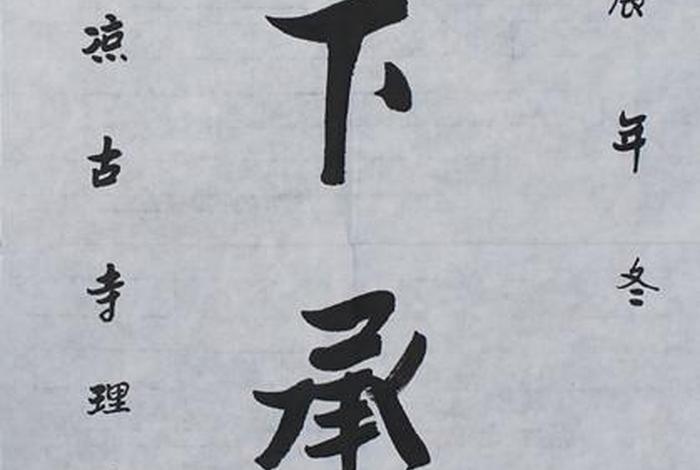 辰年冬
下承
凉古寺理